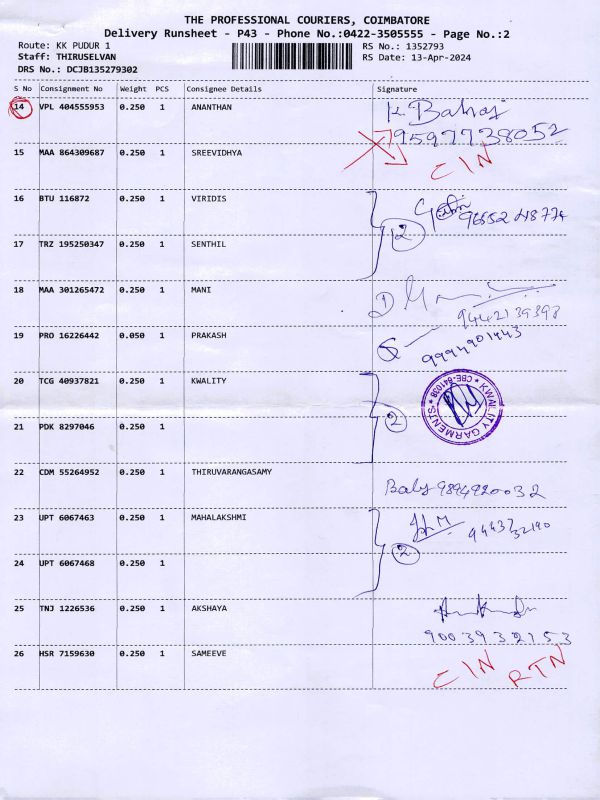 THE PROFESSIONAL COURIERS, COIMBATORE
Delivery Runsheet - P43 - Phone No.:0422-3505555 - Page No.:2
Route: KK PUDUR 1 RS No.: 1352793
Staff: THIRUSELVAN RS Date: 13-Apr-2024
DRS No.: DCJB135279302
S No Consignment No Weight PCS Consignee Details Signature
14 VPL 404555953 0.250 1 ANANTHAN K. Balraj
7959773 8052
15 MAA 864309687 0.250 1 SREEVIDHYA CIN
16 BTU 116872 0.250 1 VIRIDIS 2
17 TRZ 195250347 0.250 1 SENTHIL
18 MAA 301265472 0.250 1 MANI
9442139398
19 PRO 16226442 0.050 1 PRAKASH
9994901443
20 TCG 40937821 0.250 1 KWALITY 2 KWALITY GARMENTS CBE-641038
21 PDK 8297046 0.250 1
22 CDM 55264952 0.250 1 THIRUVARANGASAMY
Baly 9894920032
23 UPT 6067463 0.250 1 MAHALAKSHMI 2 94437 32190
24 UPT 6067468 0.250 1
25 TNJ 1226536 0.250 1 AKSHAYA
9003932153
26 HSR 7159630 0.250 1 SAMEEVE CIN RTN